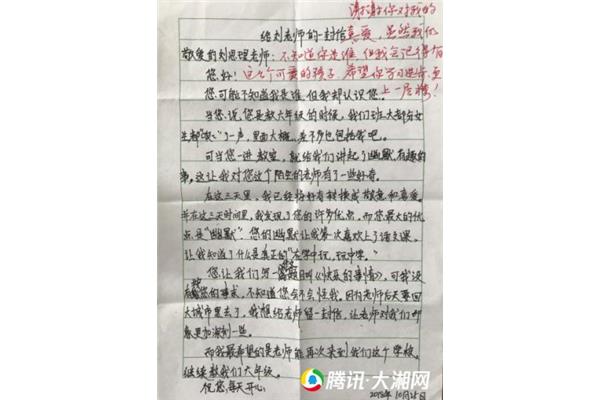 谢谢你对我的
给刘老师的一封信 喜爱，虽然我们
敬爱的刘思理老师：不知道你是谁，但我会记得有
您好！这么个可爱的孩子，希望你学习进步，更
上一层楼！
您可能不知道我是谁，但我却认识您。
当您说您是教六年级的时候，我们班大部分女
生都“哎”了一声，里面大概，差不多也包括我吧。
可当您一进教室，就给我们讲起了幽默，有趣的
事。这让我对您这个陌生的老师有了一些好奇。
在这三天里，我已经将好奇转换成敬意和喜爱。
并在这三天时间里，我发现了您的许多优点，而您最大的优
点是“幽默”。您的幽默让我第一次喜欢上了语文课。
让我知道了什么是真正的“在学中玩，玩中学。”
您让我们写一篇题目叫《快乐的事情》，可我没
有写您的事哦，不知道您会不会怪我。因为老师后天要回
大城市里去了，我想给老师留一封信，让老师对我们印
象更加深刻一些。
而我最希望的是老师能再次来到我们这个学校。
继续教我们六年级。
祝您每天开心！
2018年10月25日
腾讯·大湘网